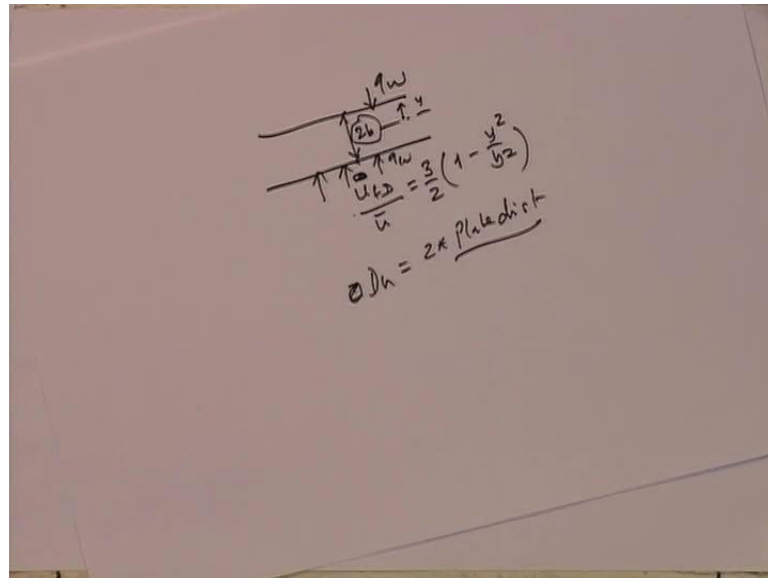 qw
y
2b
qw
u_FD / ū = 3/2 (1 - y²/b²)
Dh = 2* Plate dist